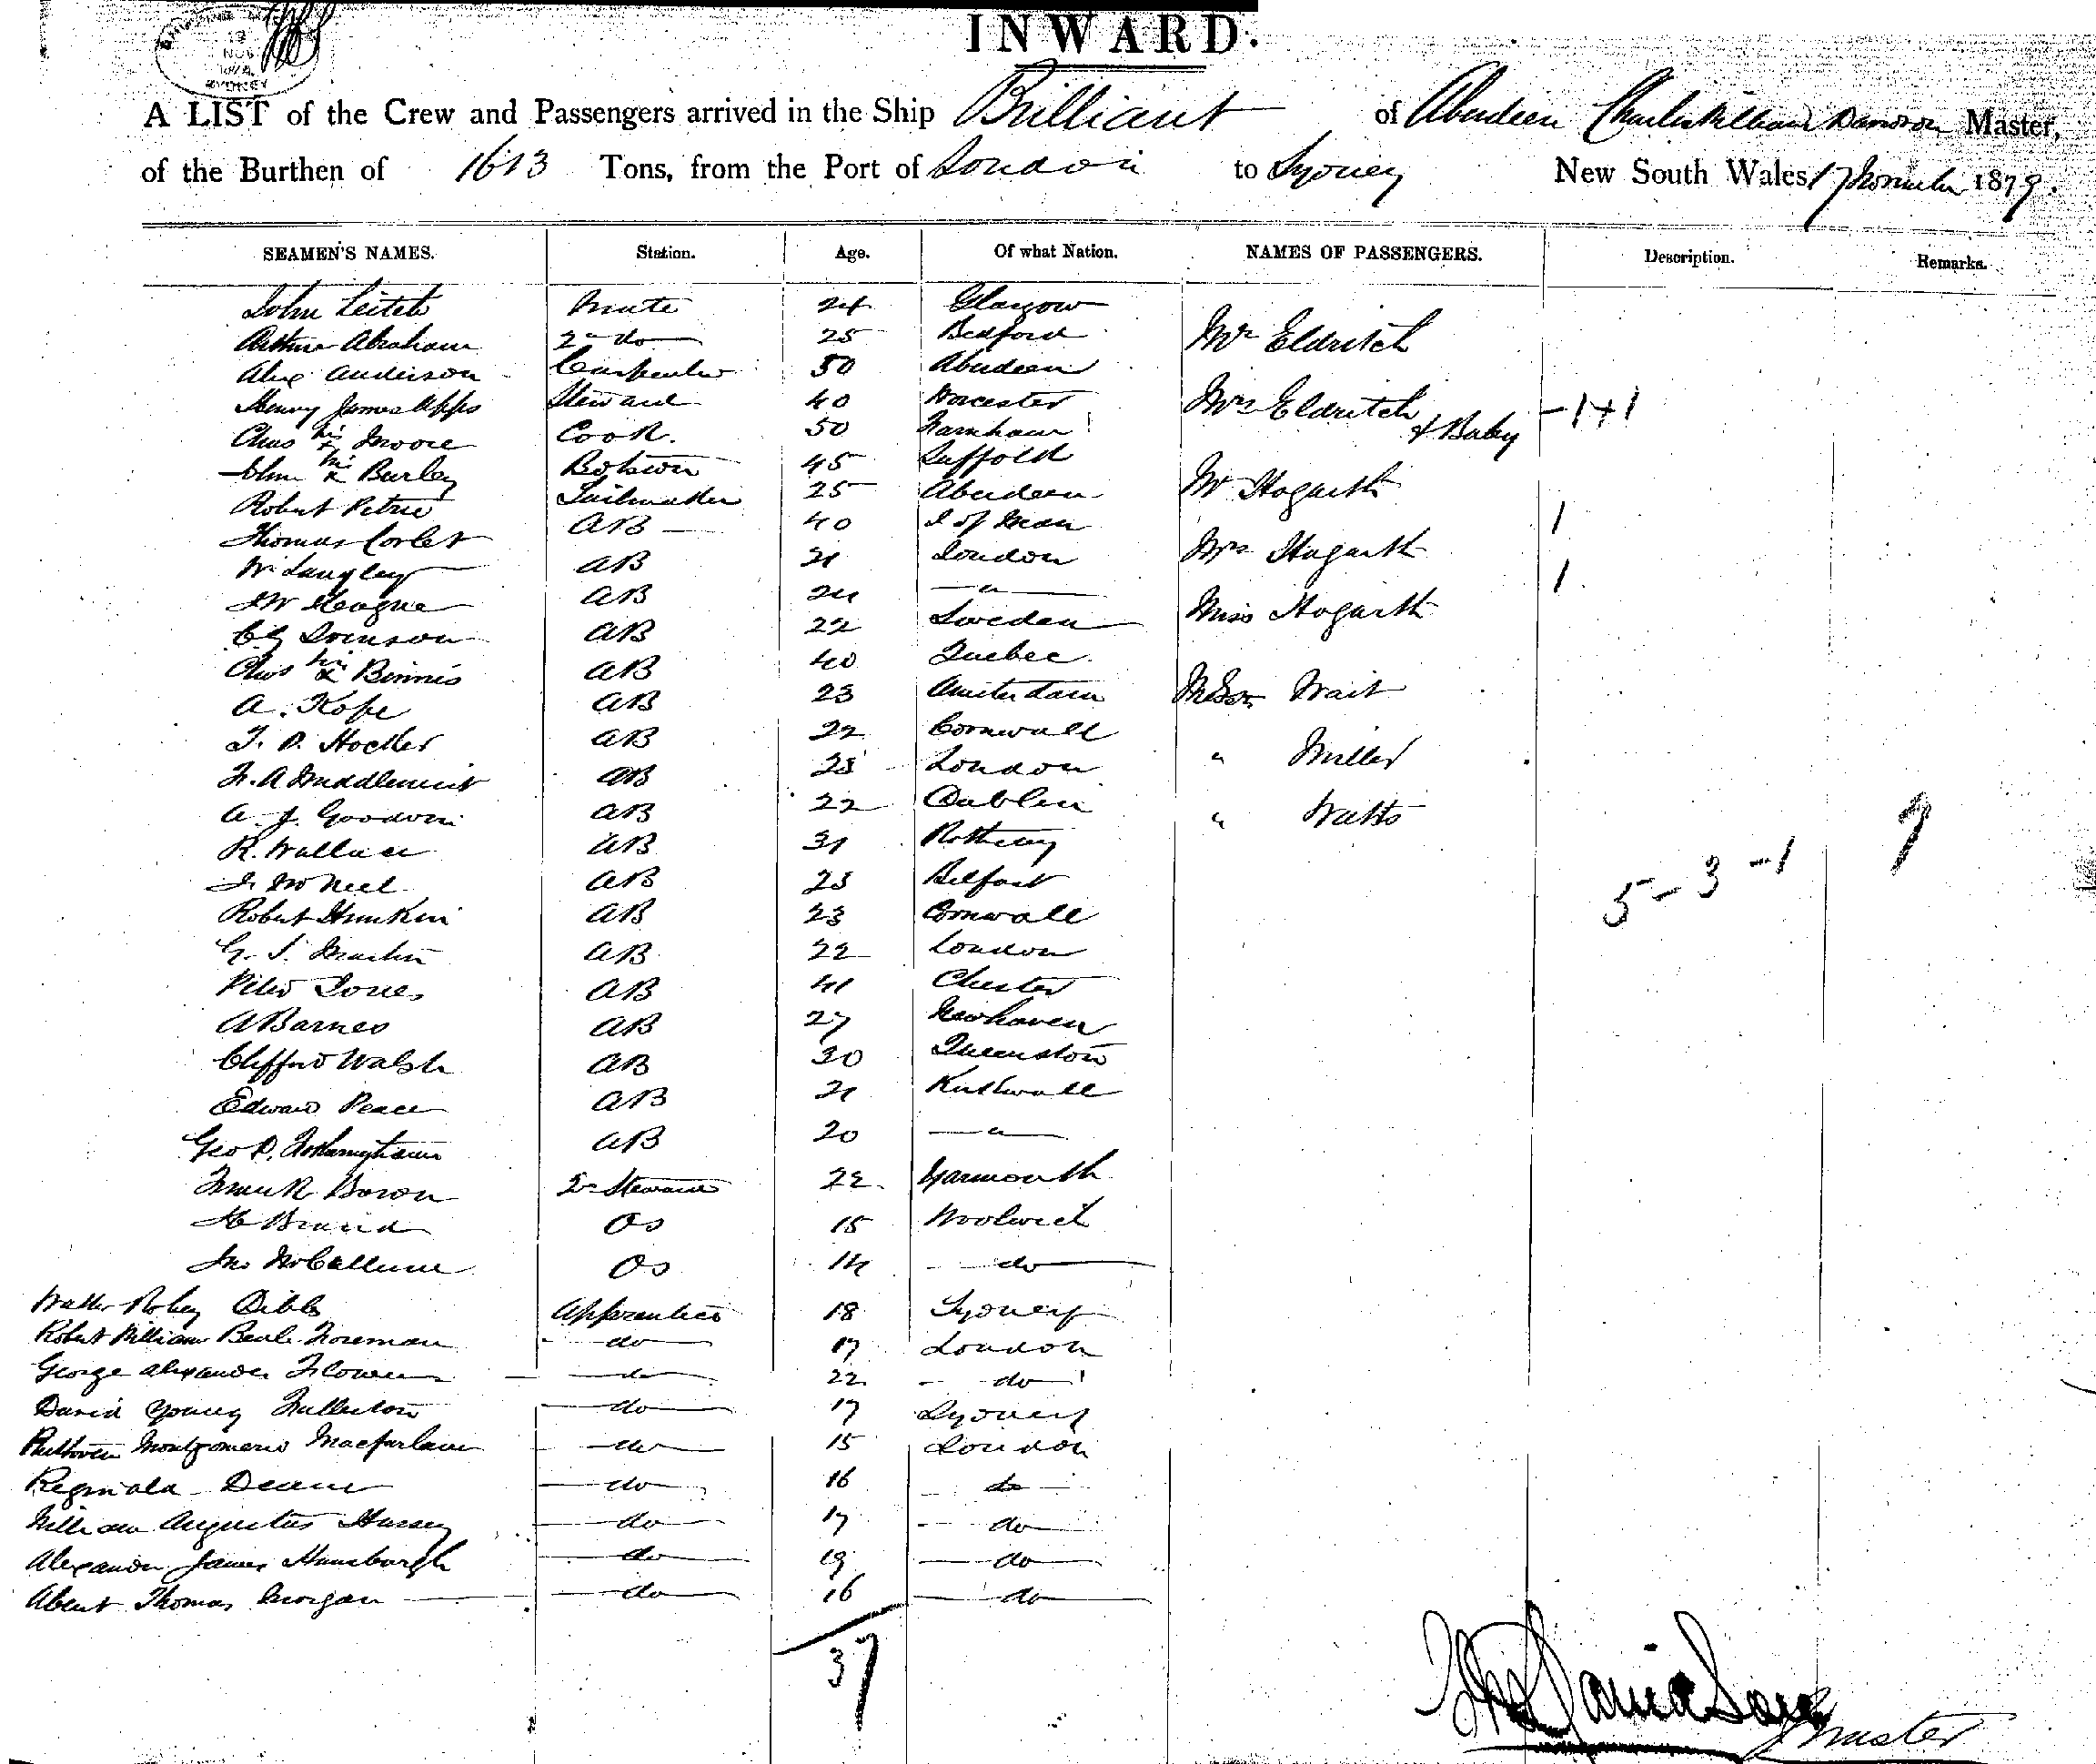 SYDNEY
INWARD.
A LIST of the Crew and Passengers arrived in the Ship Brilliant of Aberdeen Charles William Davidson Master,
of the Burthen of 1613 Tons, from the Port of London to Sydney New South Wales 17 November 1879.
SEAMEN'S NAMES. Station. Age. Of what Nation. NAMES OF PASSENGERS. Description. Remarks.
John Leitch Mate 24 Glasgow
Arthur Abraham 2nd do 25 Bedford Mr Eldritch
Alex Anderson Carpenter 50 Aberdeen
Henry James Apps Steward 40 Worcester Mrs Eldritch & Baby - 1 + 1
Chas his x Moore Cook. 50 Farnham
John his x Burley Botswn 45 Suffolk
Robert Petrie Sailmaker 25 Aberdeen Mr Hogarth
Thomas Corlet AB 40 I of Man 1
W. Langley AB 21 London Mrs Hogarth
J W Teague AB 24 " 1
AB 22 Sweden Miss Hogarth
Chas his x Binnis AB 40 Quebec
A. Kope AB 23 Amsterdam Messrs Wait
T. P. Hocker AB 22 Cornwall
F. A Middlemist AB 23 London " Miller
A. J. Goodwin AB 22 Dublin " Watts
R. Wallace AB 31 Rothesay 9
J. McNeel AB 23 Belfast 5 - 3 - 1
Robert Hunkin AB 23 Cornwall
G. S. Martin AB 22 London
Peter Jones AB 41 Chester
A Barnes AB 27 Newhaven
Clifford Walsh AB 30 Queenstown
Edward Peace AB 21 Kirkwall
Geo P. AB 20 "
Frank Bowon 2nd Steward 22 Yarmouth
H Brand OS 15 Woolwich
Jno McCallum OS 14 do
Walter Robey Dibbs Apprentice 18 Sydney
Robert William Beale Foreman do 17 London
George Alexander Flowers do 22 do
David Young Fullerton do 17 Sydney
Ruthven Montgomerie Macfarlane do 15 London
Reginald Deane do 16 do
William Augustus Hussey do 17 do
Alexander James Hansburgh do 19 do
Albert Thomas Morgan do 16 do
37
Davidson
Master